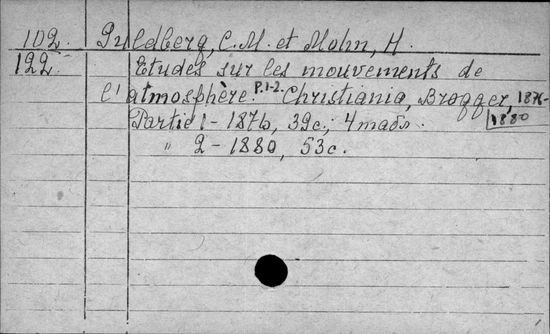 102. Guldberg, C.M. et Mohn, H.
122. Etudes sur les mouvements de
l'atmosphère. P.1-2. Christiania, Brøgger, 1876-
1880
Partie 1 - 1876, 39c.; 4 maδs.
" 2 - 1880, 53c.